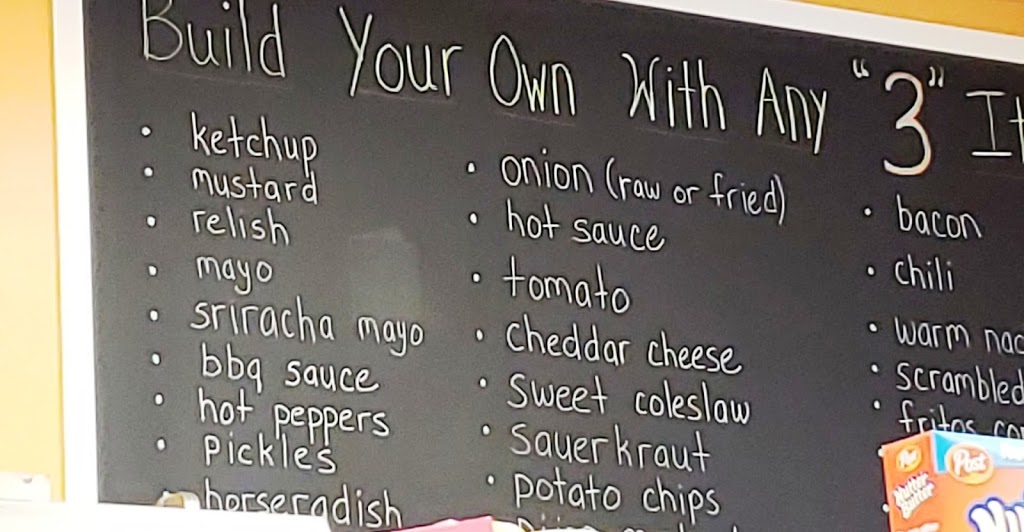 Build Your Own With Any "3"
• ketchup
• mustard
• relish
• mayo
• sriracha mayo
• bbq sauce
• hot peppers
• pickles
• horseradish
• onion (raw or fried)
• hot sauce
• tomato
• cheddar cheese
• sweet coleslaw
• sauerkraut
• potato chips
• bacon
• chili
• warm
• scrambled
• fritos
Post
Post
Nutter
Butter